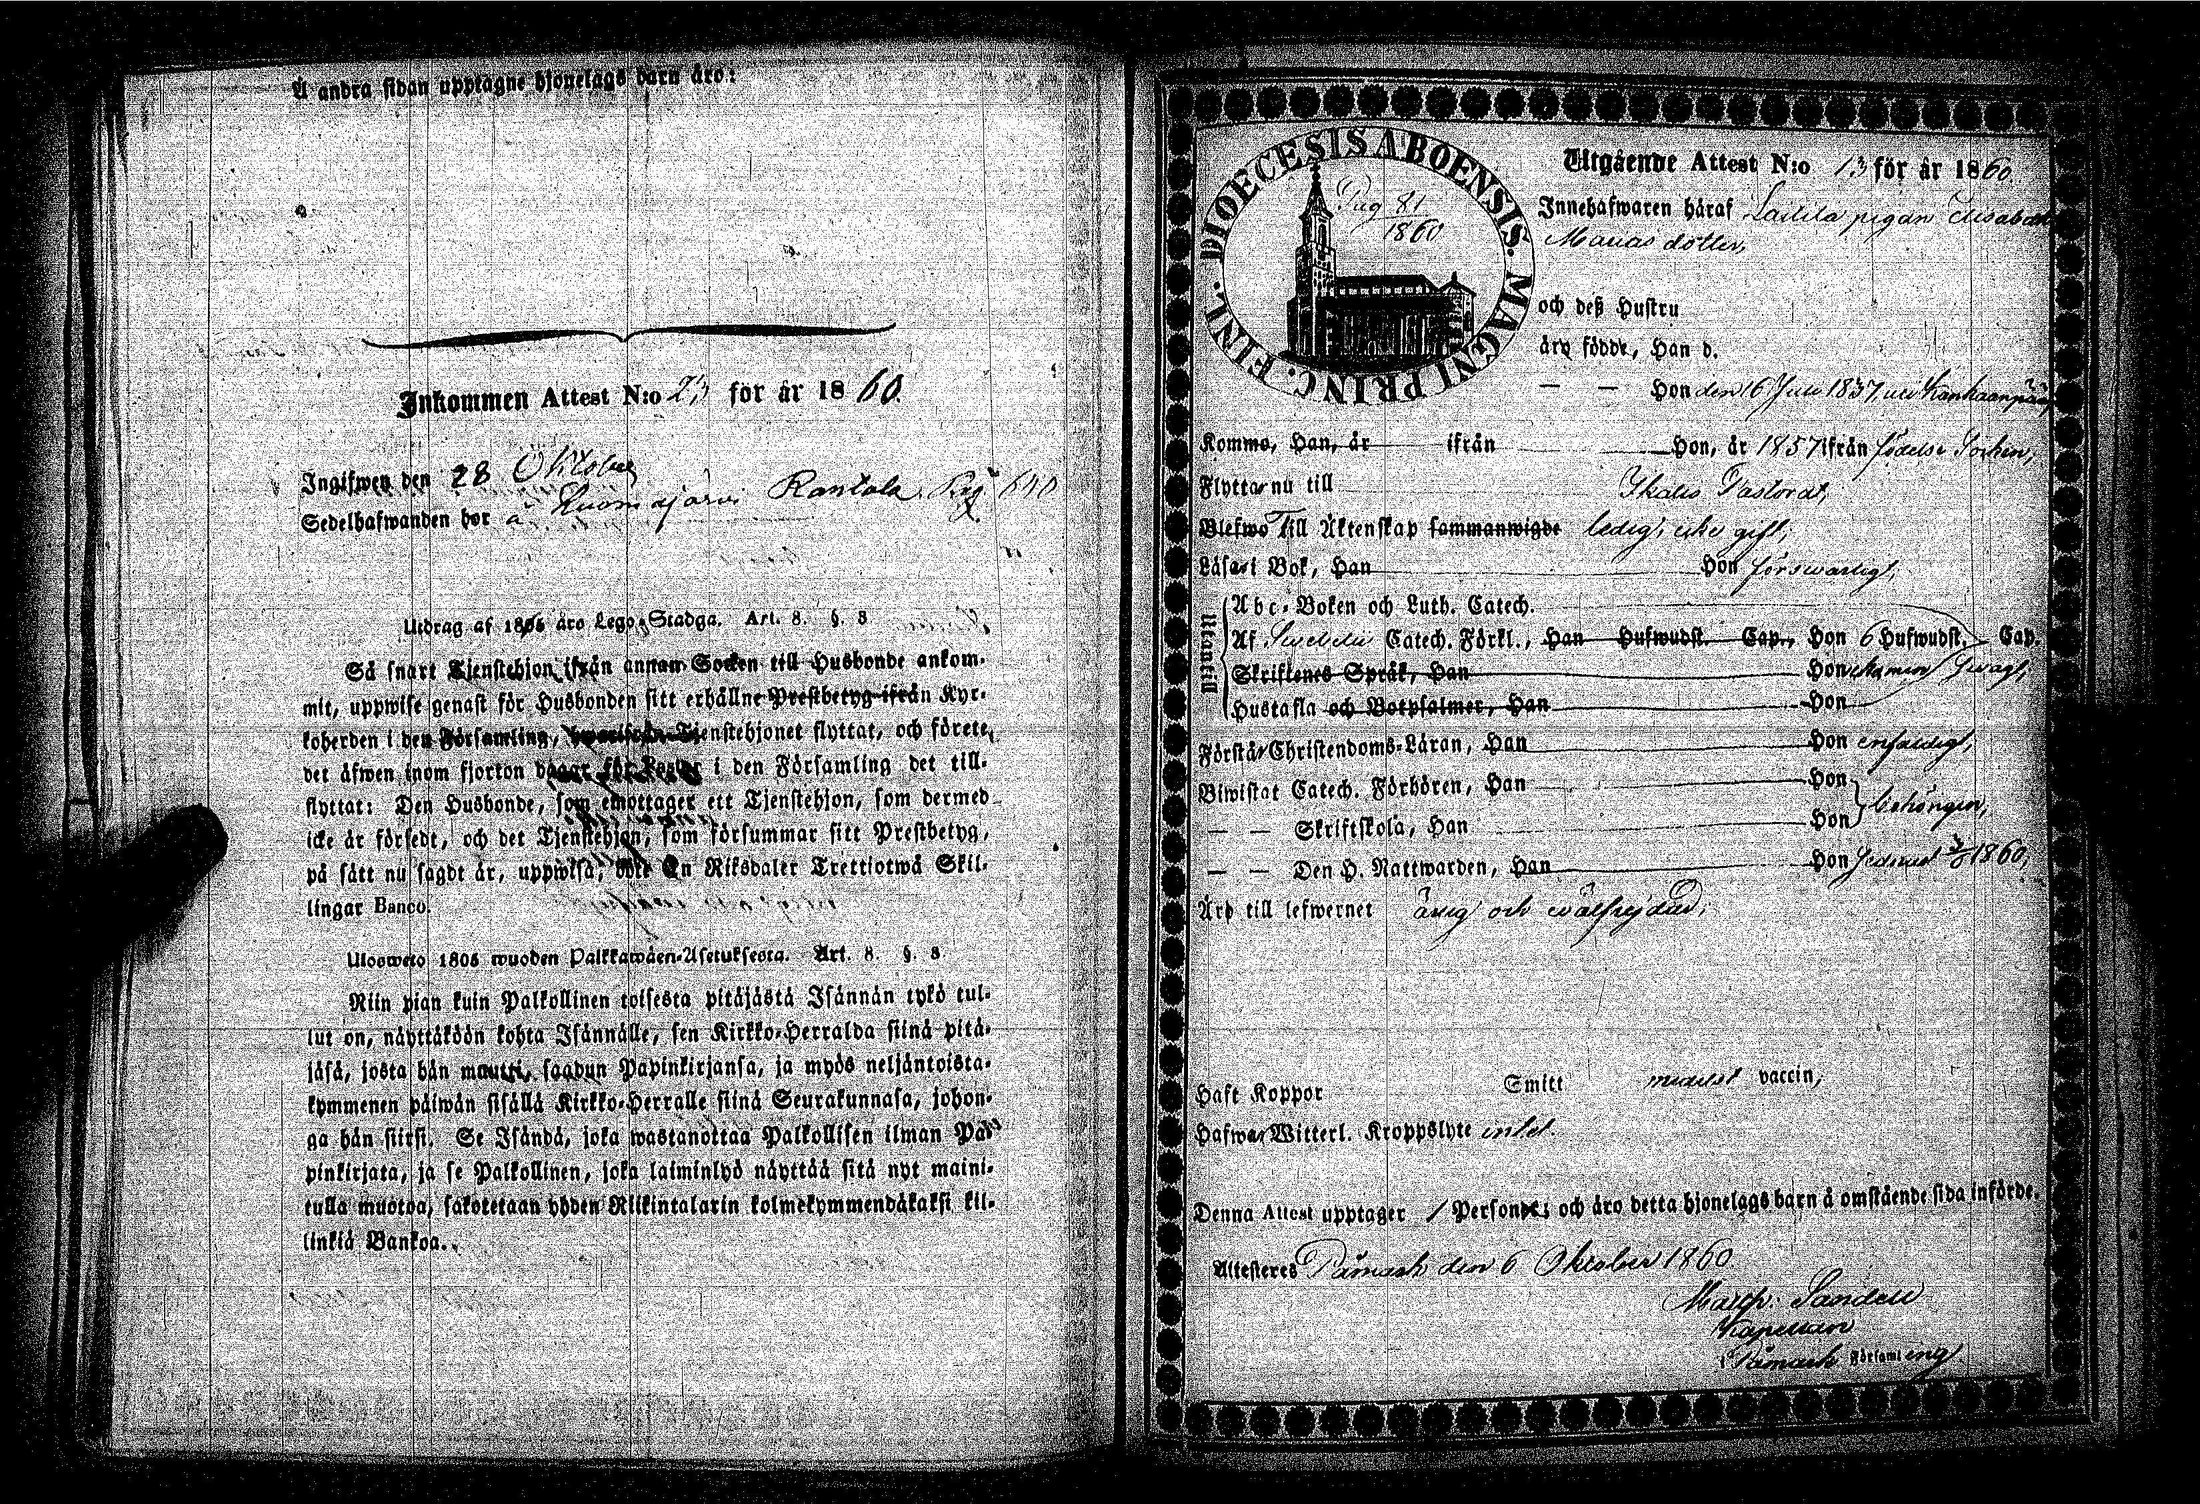 Å andra sidan upptagne hjonelags barn äro:
Inkommen Attest N:o 23 för år 1860.
Ingifwen den 28 Oktober
Sedelhafwanden bor å Kuorasjärvi Rantala Pag 640
Utdrag af 1805 års Lego-Stadga. Art. 8. §. 8
Så snart Tjenstehjon ifrån annan Socken till Husbonde ankom-
mit, uppwise genast för Husbonden sitt erhållne Prestbetyg ifrån Kyr-
koherden i den Församling, hwarifrån Tjenstehjonet flyttat, och förete
det äfwen inom fjorton dagar för Pastor i den Församling det till-
flyttat: Den Husbonde, som emottager ett Tjenstehjon, som dermed
icke är försedt, och det Tjenstehjon, som försummar sitt Prestbetyg,
på sätt nu sagdt är, uppwisa, böte En Riksdaler Trettiotwå Skil-
lingar Banco.
Ulosweto 1805 wuoden Palkkawäen-Asetuksesta. Art. 8. §. 8
Niin pian kuin Palkollinen toisesta pitäjästä Isännän tykö tul-
lut on, näyttäköön kohta Isännälle, sen Kirkko-Herralda siinä pitä-
jäsä, josta hän muutti, saadun Papinkirjansa, ja myös neljäntoista-
kymmenen päiwän sisällä Kirkko-Herralle siinä Seurakunnasa, johon-
ga hän siirsi. Se Isändä, joka wastanottaa Palkollisen ilman Pa-
pinkirjata, ja se Palkollinen, joka laiminlyö näyttää sitä nyt maini-
tulla muotoa, sakotetaan yhden Riikintalarin kolmekymmendäkaksi kil-
linkiä Bankoa.
DIOECESIS ABOENSIS. MAGNI PRINC. FINL.
Pag 81
1860
Utgående Attest N:o 13 för år 1860
Innehafwaren häraf Laitila pigan Elisabeth
Mariasdotter,
och deß Hustru
äro födde, Han d.
— — Hon den 16 Juli 1837, uti Kankaanpää
Komme, Han, år ifrån Hon, år 1857 ifrån födelse Socken,
Flyttar nu till Ikalis Pastorat,
Blefwo Till Äktenskap sammanwigde ledig, icke gift,
Läsa i Bok, Han Hon försvarligt,
Utantill
Abc-Boken och Luth. Catech.
Af Svebelii Catech. Förkl., Han Hufwudst. Cap., Hon 6 Hufwudst. Cap.
Skriftenes Språk, Han Hon svagt,
Hustafla och Botpsalmer, Han Hon
Förstå Christendoms-Läran, Han Hon enfaldigt,
Biwistat Catech. Förhören, Han Hon
— — Skriftskola, Han Hon behörigen,
— — Den H. Nattwarden, Han Hon senast 1860,
Äro till lefwernet ärlig och välfrejdad;
Haft Koppor Smitt medelst vaccin,
Hafwa Witterl. Kroppslyte intet.
Denna Attest upptager 1 Person; och äro detta hjonelags barn å omstående sida införde.
Attesteres Påmark den 6 Oktober 1860
Sandell
Kapellan
i Påmark Församling